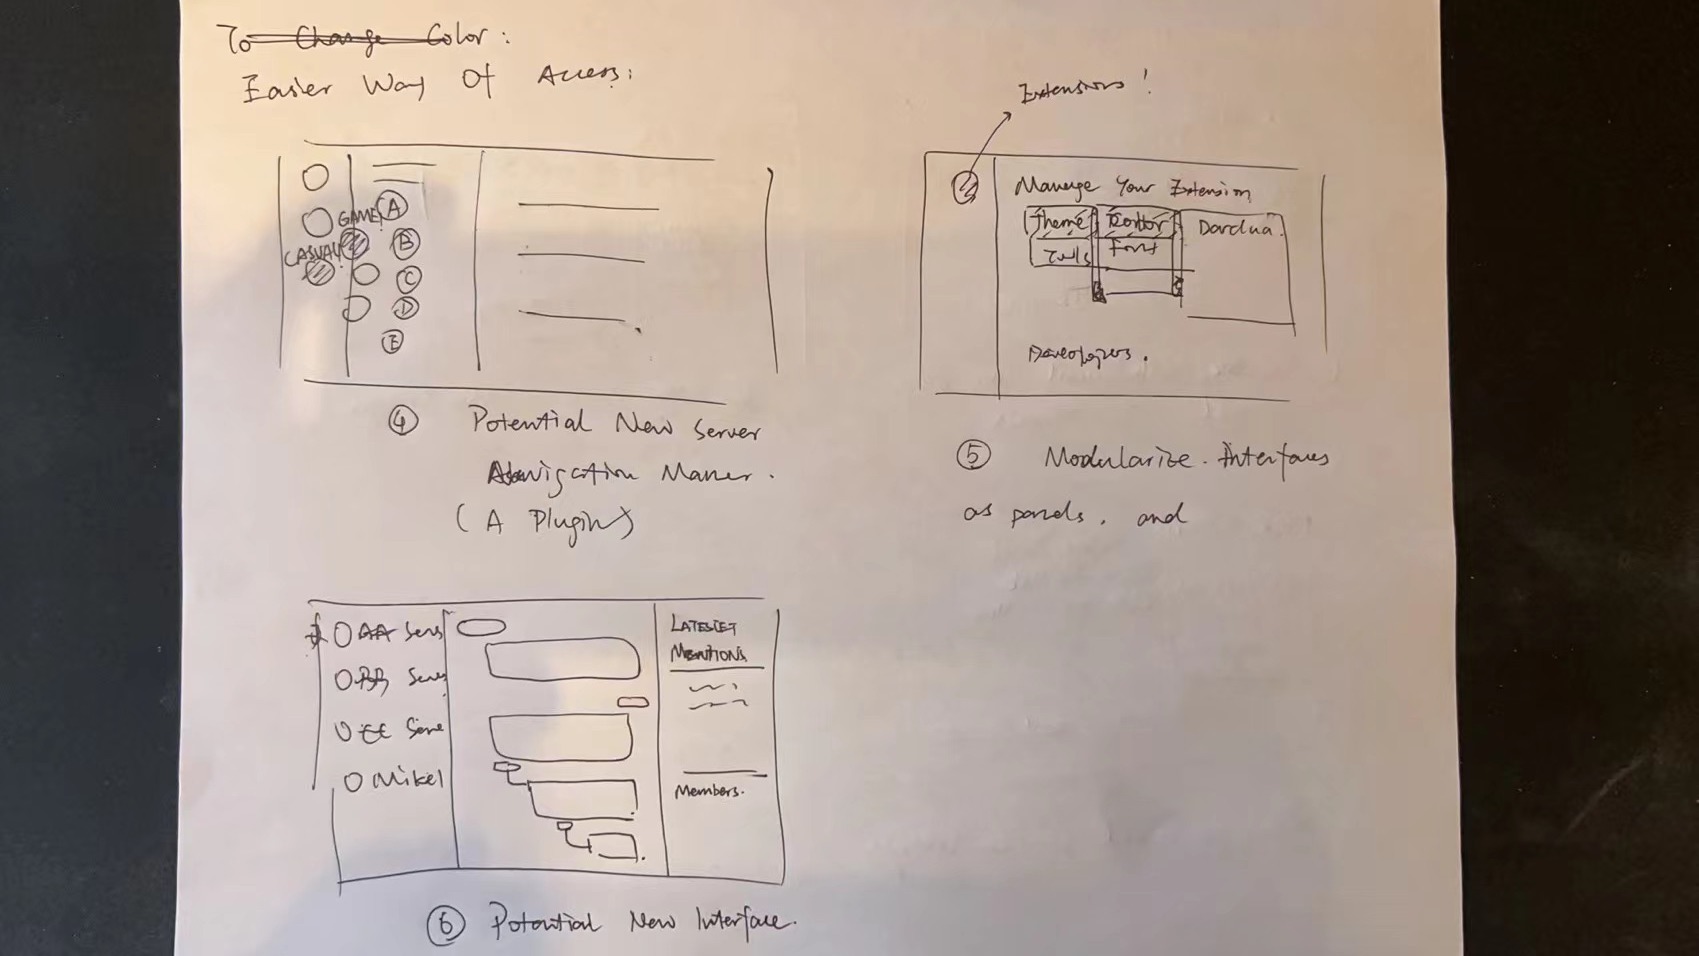 To Change Color:
Easier Way Of Access:
GAME
CASUAL
A
B
C
D
E
④ Potential New Server
Navigation Maner.
(A Plugin)
Extensions!
Manage Your Extension
Theme
Tools
Font
Developers.
⑤ Modularize. Interfaces
as panels, and
AA Serv
BB Serv
CC Serve
Mikel
LATESTET
MENTIONS
Members.
⑥ Potential New Interface.